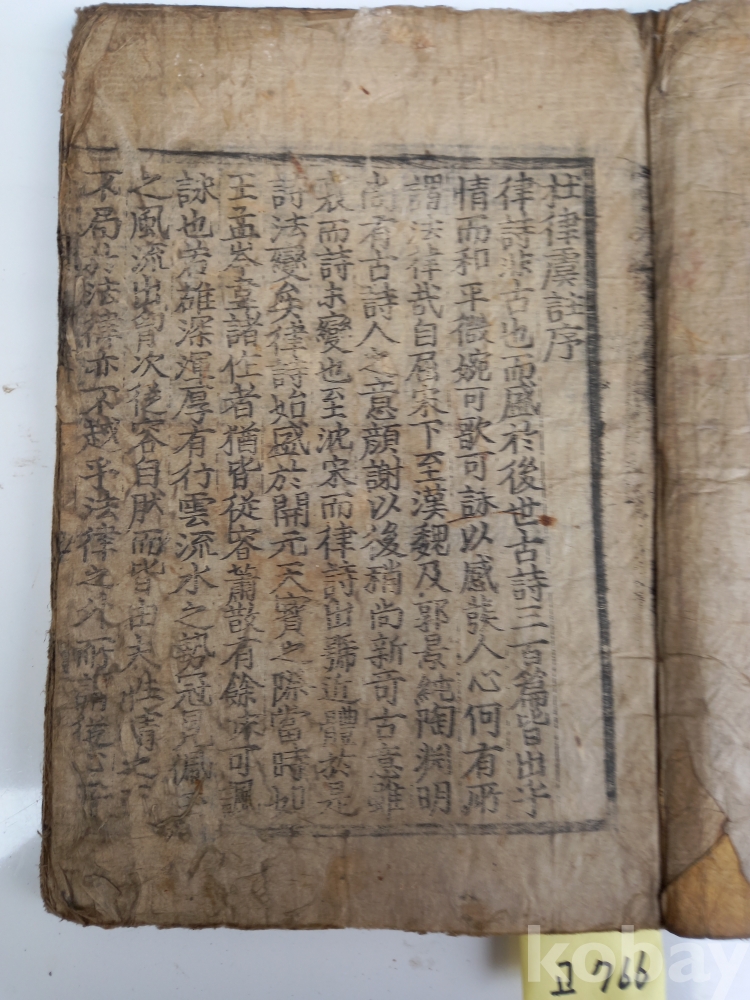 杜律虞註序
律詩非古也而盛於後世古詩三百篇皆出乎
情而和平微婉可歌可詠以感發人心何有所
謂法律哉自屈宋下至漢魏及郭景純陶渊明
尚有古詩人之意顔謝以後稍尚新奇古意雖
衰而詩未變也至沈宋而律詩出號近體於是
詩法變矣律詩始盛於開元天寶之際當時如
王孟岑韋諸作者猶皆從容蕭散有餘味可諷
詠也若雄深渾厚有行雲流水之勢冠冕佩玉
之風流出胷次從容自然而皆由夫性情之正
不局於法律亦不越乎法律之外所謂從心
고 766
kobay